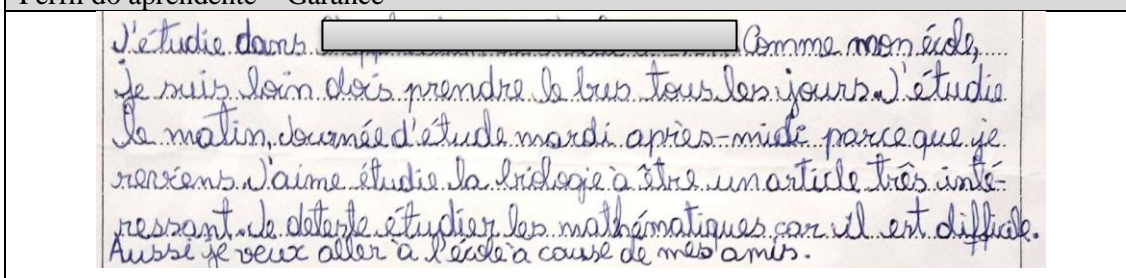 Perfil do aprendente – Garance
J'étudie dans Comme mon école,
je suis loin dois prendre le bus tous les jours. J'étudie
le matin, Journée d'étude mardi après-midi parce que je
reviens. J'aime étudie la biologie à être un article très inté-
ressant. Je deteste étudier les mathématiques car il est difficile.
Aussi je veux aller à l'école à cause de mes amis.